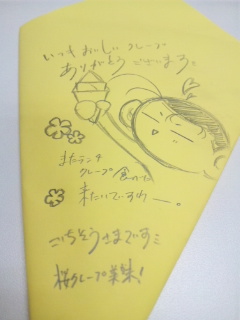 いつも おいしい クレープ
ありがとう ございまする。
またランチ
クレープ 食べに
来たいですわ ー 。
ごちそうさまです
桜クレープ 募集!